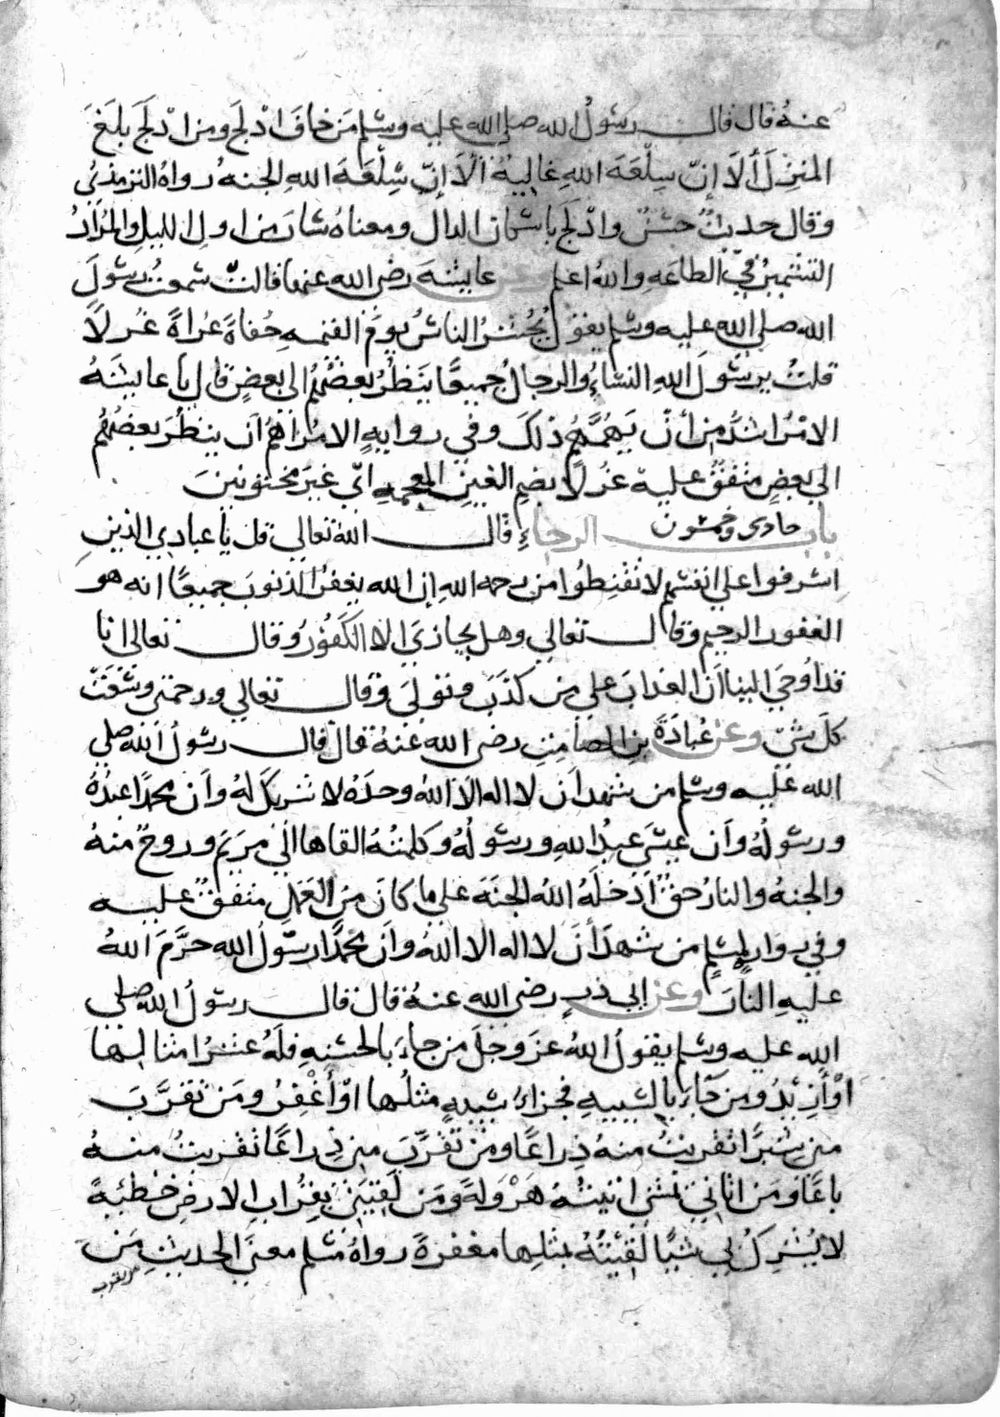 عنهُ قال قال رسُولُ الله صلى الله عليه وسلم مَن خافَ ادْلجَ ومن ادْلَجَ بلَغَ
المنزلَ ألَا إنّ سِلْعَةَ اللهِ غاليةٌ ألَا إنّ سِلْعَةَ اللهِ الجنه رواهُ الترمذيُّ
وقال حديثٌ حسَنٌ وادْلَج باسكان الدال ومعناهُ سَارَ من اول الليل والمُرادُ
التشميرُ في الطاعَهِ واللهُ اعلم وعن عايشَهَ رضي الله عنها قالتْ سمعتُ رسُولَ
الله صلى الله عليه وسلم يقولُ يُحْشرُ الناسُ يومَ القيمهِ حُفاةً عُراةً غُرلًا
قلتُ يرسُولَ اللهِ النسَاءُ والرجالُ جميعًا يَنظرُ بعضُهُمُ الى بعضٍ قال يا عايشَهُ
الامْرُ اشَدُّ من أنْ يَهُمَّهُم ذلكَ وفي روايهٍ الامرُ اهَمُّ اَن ينظُرَ بعضُهُم
الى بعضٍ متفقٌ عليه غُرلًا بضمِ الغينِ المعجمه ايْ غيرَ مختونينَ
باب حادى وخمسون الرجاءِ قال الله تعالي قل يا عبادي الذين
اسرفوا علي انفسهم لا تقْنِطُوا من رحمه اللهِ ان الله يغفرُ الذنوبَ جميعًا انه هو
الغفور الرحيم وقال تعالي وهل يجازي الا الكَفُورُ وقال تعالى انا
قد اُوحيَ الينا أنّ العذابَ علي من كذّبَ وتوليَ وقال تعالي ورحمتي وسعَتْ
كلَ شيٍ وعن عُبادَةَ بنِ الصامتِ رضي الله عنهُ قال قال رسُولُ الله صلي
الله عليه وسلم من شهدَ اَن لا اله الا اللهُ وحدَهُ لا شريكَ لهُ وأن محمدًا عبدُهُ
ورسُولُهُ وأن عيسَى عبدُ اللهِ ورسُولُهُ وكلمتُهُ القاها الي مرْيَمَ وروحٌ منهُ
والجنهُ والنارُ حقٌ اَدخلَهُ اللهُ الجنّةَ علي ما كانَ مِنَ العَمَلِ متفقٌ عليه
وفي روايه لمسلمٍ من شهدَ أنْ لا اله الا اللهُ وأن محمدًا رسُولُ الله حرّمَ اللهُ
عليهِ النارَ وعن ابي ذرٍ رضي الله عنهُ قال قال رسُولُ الله صلى
الله عليه وسلم يقولُ اللهُ عزَ وجَلَ من جاءَ بالحسَنهِ فلَهُ عشرُ امثالِها
اوْ أزيْدُ ومن جَاءَ بالسيئهِ فجزاءُ سَيئةٍ مثلُها اوْ أغْفِرُ ومَن تقرّبَ
منيّ شبرًا تقربتُ منهُ ذِراعًا ومَنْ تَقرّبَ منيّ ذِراعًا تقربتُ منهُ
باعًا وَمَن اتاني يمشي اتيتُهُ هَرْوَلةً ومَن لقيَني بقرابِ الارضِ خَطيئةً
لا يُشركُ بي شيًا لقيْتُهُ بمثلِها مغفرةً رواهُ مسْلم معنَي الحديثِ مَن
من تقرب